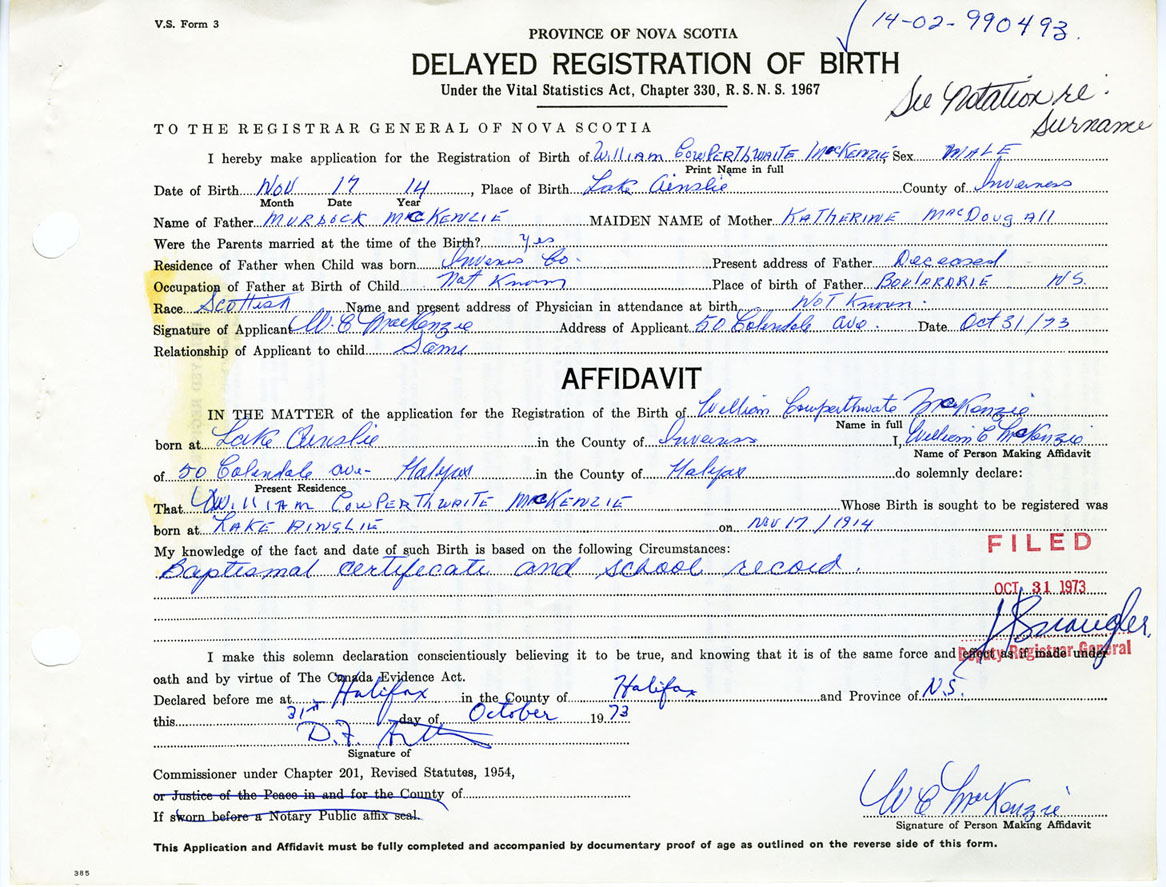 V.S. Form 3
14-02-990493.
PROVINCE OF NOVA SCOTIA
DELAYED REGISTRATION OF BIRTH
Under the Vital Statistics Act, Chapter 330, R.S.N.S. 1967
See Notation re: Surname
TO THE REGISTRAR GENERAL OF NOVA SCOTIA
I hereby make application for the Registration of Birth of William Cowperthwaite McKenzie Sex MALE
Print Name in full
Date of Birth Nov 17 14, Place of Birth Lake Ainslie County of Inverness
Month Date Year
Name of Father MURDOCK McKENZIE MAIDEN NAME of Mother KATHERINE MacDougall
Were the Parents married at the time of the Birth? Yes
Residence of Father when Child was born Inverness Co. Present address of Father Deceased
Occupation of Father at Birth of Child Not Known Place of birth of Father BOULARDRIE N.S.
Race Scottish Name and present address of Physician in attendance at birth NOT Known.
Signature of Applicant W. C. MacKenzie Address of Applicant 50 Colendale ave. Date Oct 31/73
Relationship of Applicant to child Same
AFFIDAVIT
IN THE MATTER of the application for the Registration of the Birth of William Cowperthwate McKenzie
Name in full
born at Lake Ainslie in the County of Inverness I, William C McKenzie
Name of Person Making Affidavit
of 50 Colendale ave- Halifax in the County of Halifax do solemnly declare:
Present Residence
That William COWPERTHWAITE McKENZIE Whose Birth is sought to be registered was
born at LAKE AINSLIE on Nov 17/1914
My knowledge of the fact and date of such Birth is based on the following Circumstances:
Baptismal certificate and school record.
FILED
OCT 31 1973
Deputy Registrar General
I make this solemn declaration conscientiously believing it to be true, and knowing that it is of the same force and effect as if made under
oath and by virtue of The Canada Evidence Act.
Declared before me at Halifax in the County of Halifax and Province of N.S.
this 31st day of October 1973
D.F.
Signature of
Commissioner under Chapter 201, Revised Statutes, 1954,
or Justice of the Peace in and for the County of
If sworn before a Notary Public affix seal.
W C MacKenzie
Signature of Person Making Affidavit
This Application and Affidavit must be fully completed and accompanied by documentary proof of age as outlined on the reverse side of this form.
385